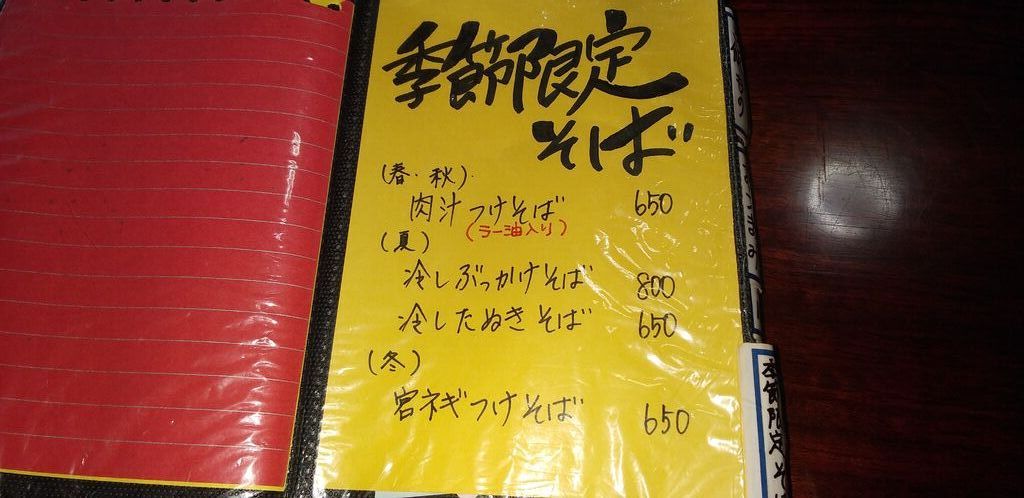 季節限定
そば
(春・秋)
肉汁つけそば 650
(ラー油入り)
(夏)
冷しぶっかけそば 800
冷したぬきそば 650
(冬)
宮ネギつけそば 650
季節限定そば